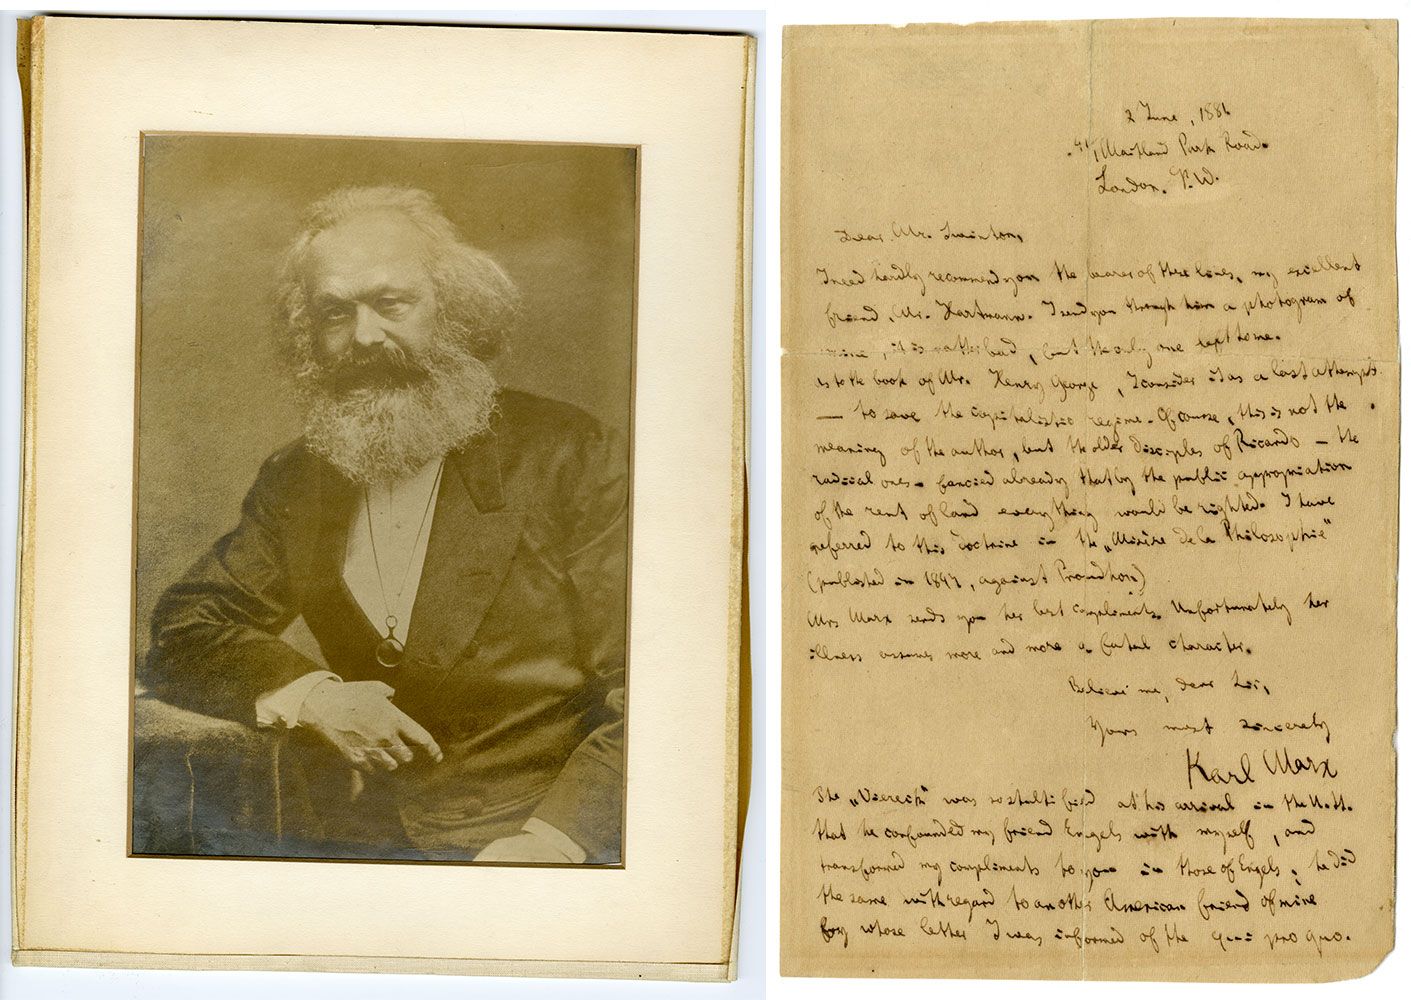 2 June, 1881
41, Maitland Park Road.
London. N.W.
Dear Mr. Swinton,
I need hardly recommend you the bearer of these lines, my excellent
friend, Mr. Hartmann. I send you through him a photogram of
mine, it is rather bad, but the only one left to me.
As to the book of Mr. Henry George, I consider it as a last attempt
— to save the capitalistic regime. Of course, this is not the
meaning of the author, but the older disciples of Ricardo — the
radical ones — fancied already that by the public appropriation
of the rent of land everything would be righted. I have
referred to this doctrine in the „Misère de la Philosophie“
(published in 1847, against Proudhon)
Mrs Marx sends you her best compliments. Unfortunately her
illness assumes more and more a fatal character.
Believe me, dear Sir,
Yours most sincerely
Karl Marx
The „Viereck“ was so stultified at his arrival in the U. St.
that he confounded my friend Engels with myself, and
transformed my compliments to you in those of Engels; he did
the same with regard to another American friend of mine
by whose letter I was informed of the qui pro quo.